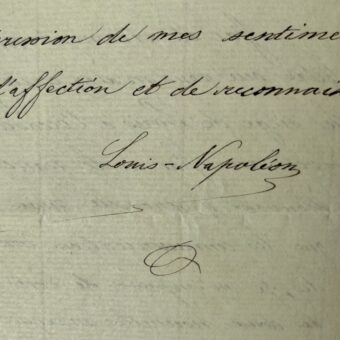 ression de mes sentime
d'affection et de reconnais
Louis-Napoléon